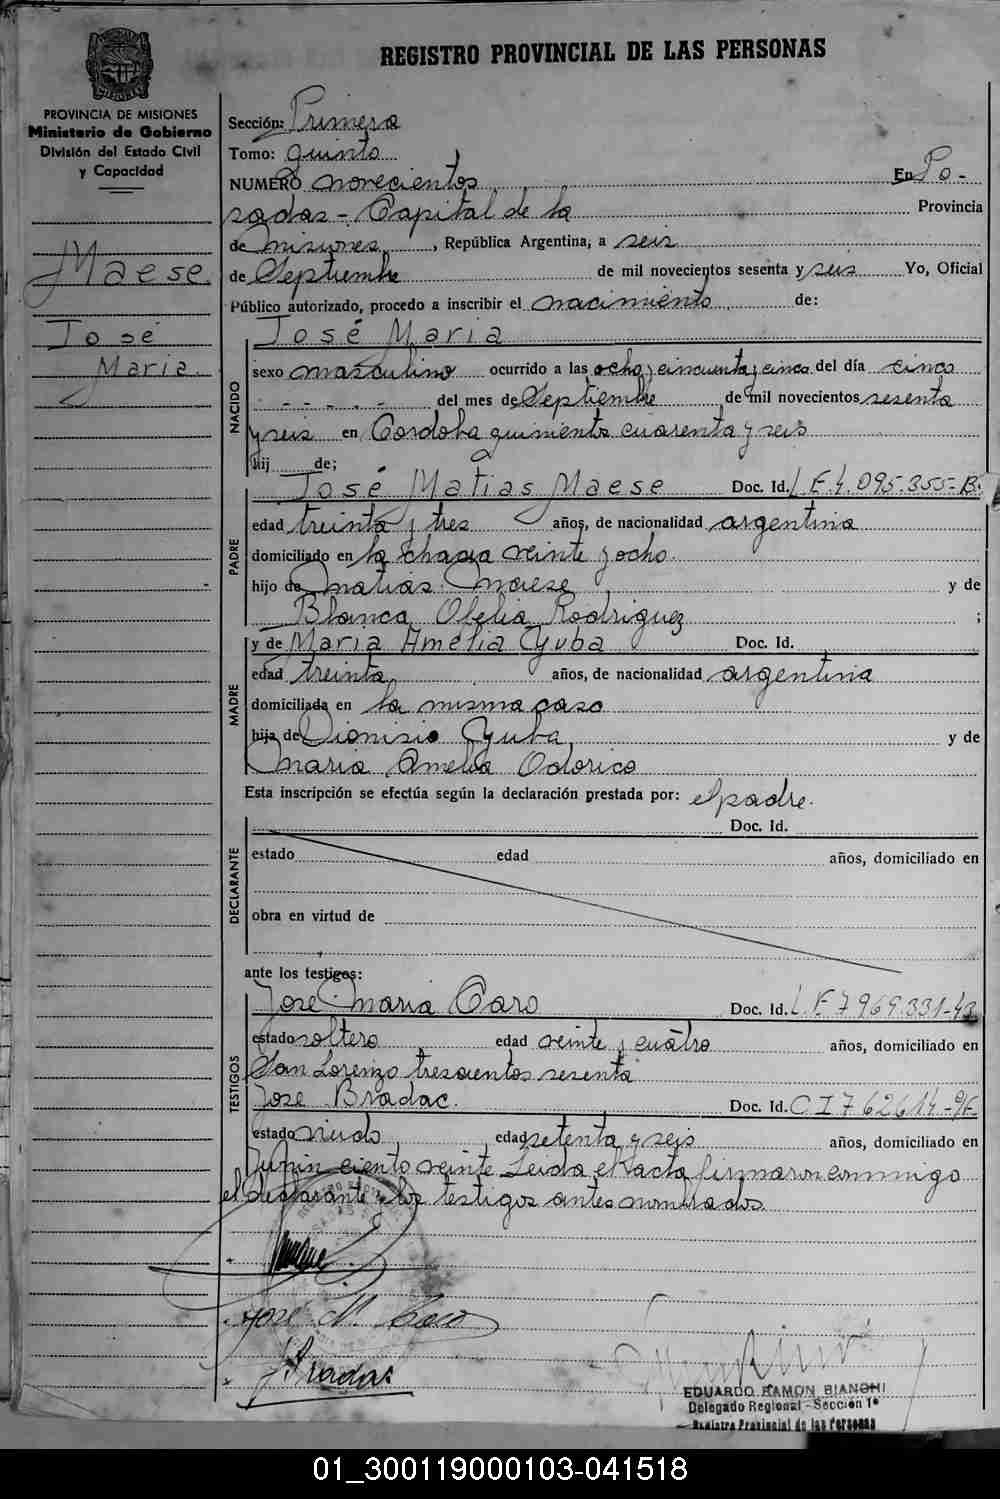 REGISTRO PROVINCIAL DE LAS PERSONAS
PROVINCIA DE MISIONES
Ministerio de Gobierno
División del Estado Civil
y Capacidad
Maese
José
Maria.
Sección: Primera
Tomo: quinto
NUMERO novecientos En Po-
sadas - Capital de la Provincia
de misiones, República Argentina, a seis
de Septiembre de mil novecientos sesenta y seis Yo, Oficial
Público autorizado, procedo a inscribir el nacimiento de:
José Maria
NACIDO
sexo masculino ocurrido a las ocho y cincuenta y cinco del día cinco
- - - - - del mes de Septiembre de mil novecientos sesenta
y seis en Cordoba quinientos cuarenta y seis
hij de;
PADRE
José Matias Maese Doc. Id. L.E. 4.095.355-B.
edad treinta y tres años, de nacionalidad argentina
domiciliado en la chacra veinte y ocho.
hijo de matias Maese y de
Blanca Ofelia Rodriguez ;
MADRE
y de Maria Amelia Cyuba Doc. Id.
edad treinta años, de nacionalidad argentina
domiciliada en la misma casa
hija de Dionisio Cyuba y de
Maria Amelia Odorico
Esta inscripción se efectúa según la declaración prestada por: el padre.
DECLARANTE
Doc. Id.
estado edad años, domiciliado en
obra en virtud de
ante los testigos:
TESTIGOS
José Maria Caro Doc. Id. L.E. 7969.331-43
estado soltero edad veinte y cuatro años, domiciliado en
San Lorenzo trescientos sesenta
José Bradac. Doc. Id. C I 762614-
estado viudo edad setenta y seis años, domiciliado en
Junin ciento veinte Leida el acta firmaron conmigo
el declarante y los testigos antes nombrados
José M. Caro
J Bradac
EDUARDO RAMON BIANCHI
Delegado Regional - Sección 1ª
Registro Provincial de las Personas
01_300119000103-041518